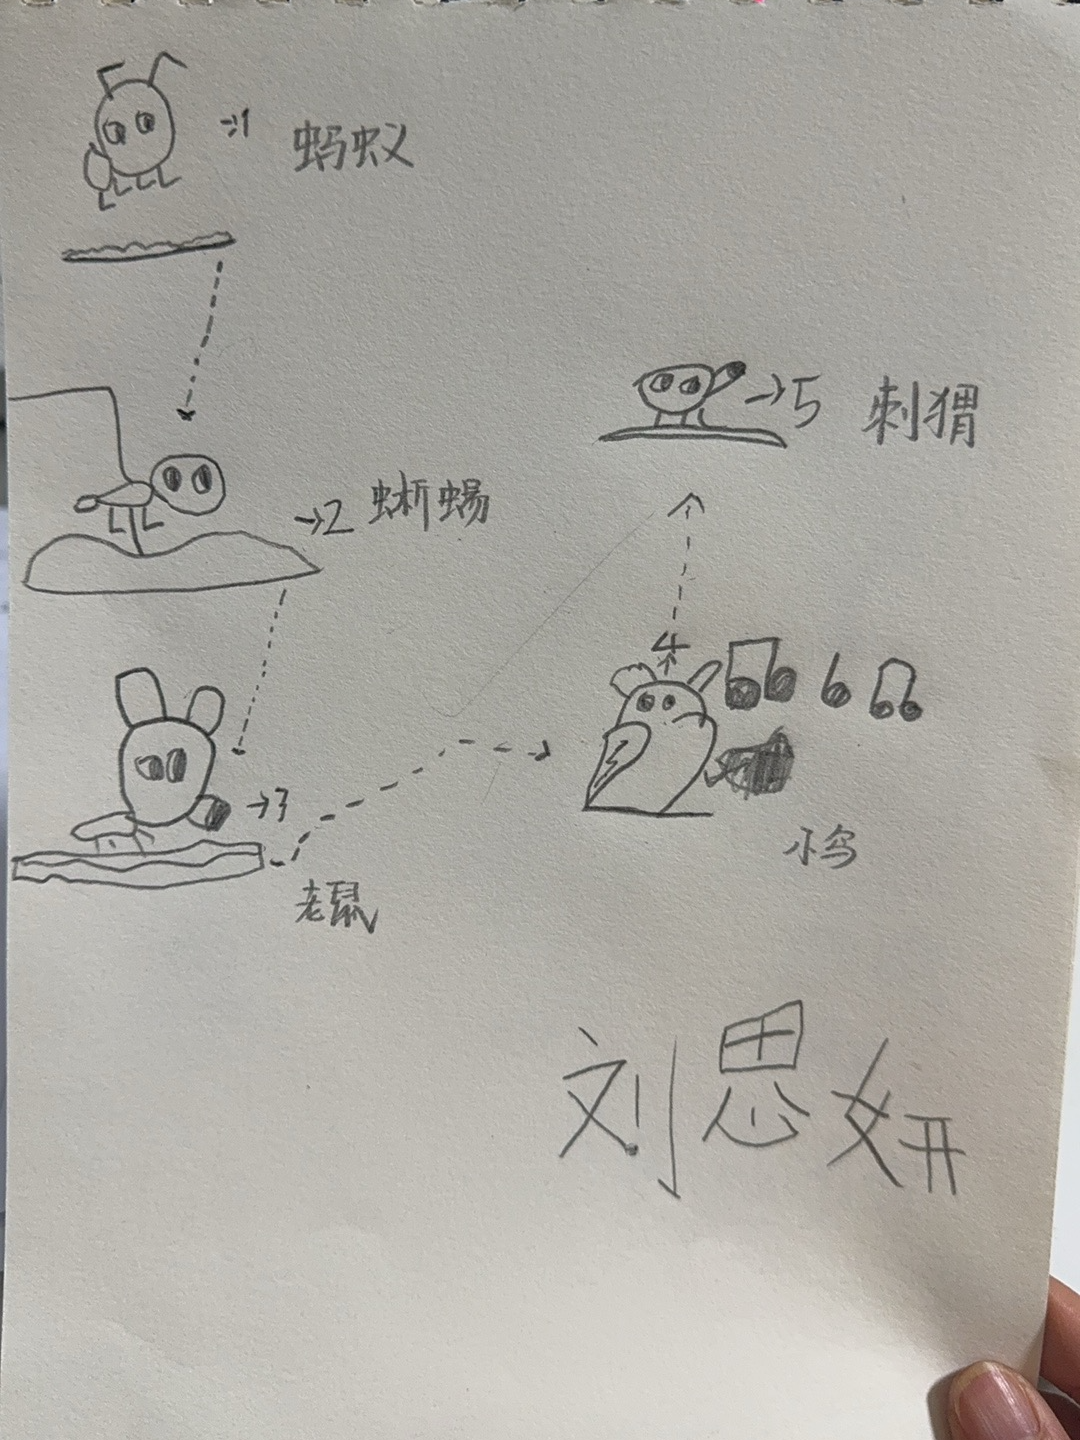 →1 蚂蚁
→2 蜥蜴
→3
老鼠
4
小鸟
→5 刺猬
刘思妍